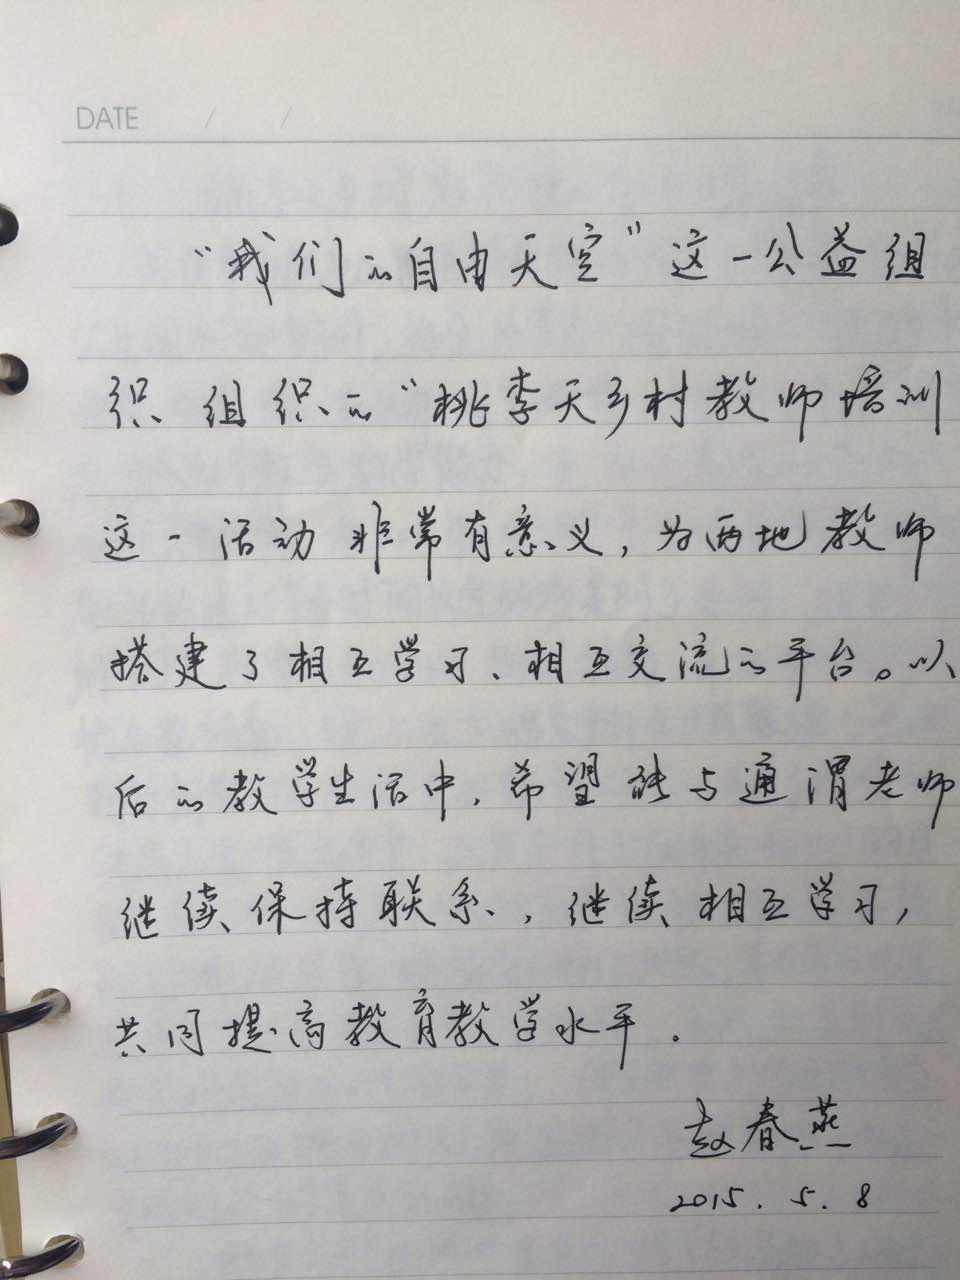 DATE / /
“我们的自由天空”这一公益组
织组织的“桃李天乡村教师培训
这一活动非常有意义，为两地教师
搭建了相互学习、相互交流的平台。以
后的教学生活中，希望能与通渭老师
继续保持联系，继续相互学习，
共同提高教育教学水平．
赵春燕
2015．5．8